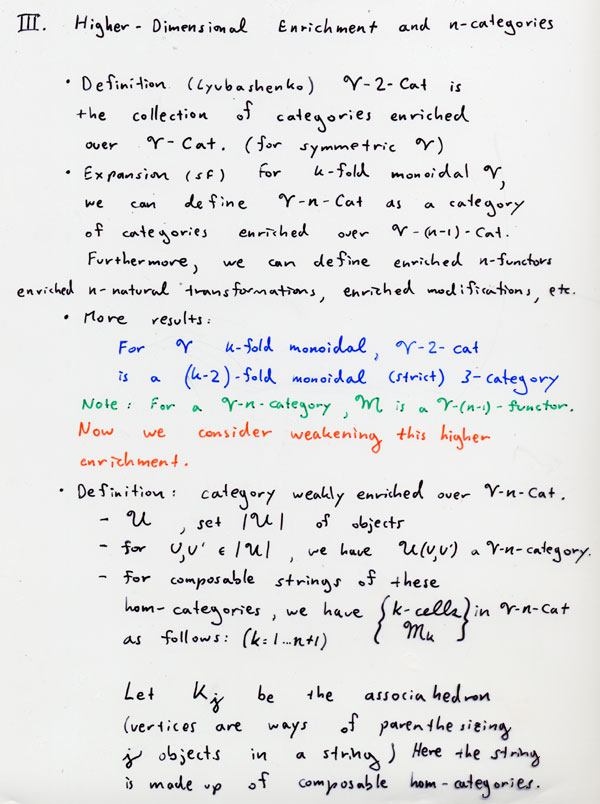 III. Higher-Dimensional Enrichment and n-categories
• Definition (Lyubashenko) 𝒱-2-Cat is
the collection of categories enriched
over 𝒱-Cat. (for symmetric 𝒱)
• Expansion (SF) For k-fold monoidal 𝒱,
we can define 𝒱-n-Cat as a category
of categories enriched over 𝒱-(n-1)-Cat.
Furthermore, we can define enriched n-functors
enriched n-natural transformations, enriched modifications, etc.
• More results:
For 𝒱 k-fold monoidal, 𝒱-2-cat
is a (k-2)-fold monoidal (strict) 3-category
Note: For a 𝒱-n-category, ℳ is a 𝒱-(n-1)-functor.
Now we consider weakening this higher
enrichment.
• Definition: category weakly enriched over 𝒱-n-Cat.
- 𝒰, set |𝒰| of objects
- for U,U' ∈ |𝒰|, we have 𝒰(U,U') a 𝒱-n-category.
- For composable strings of these
hom-categories, we have {k-cells ℳk} in 𝒱-n-Cat
as follows: (k=1...n+1)
Let Kj be the associahedron
(vertices are ways of parenthesizing
j objects in a string) Here the string
is made up of composable hom-categories.